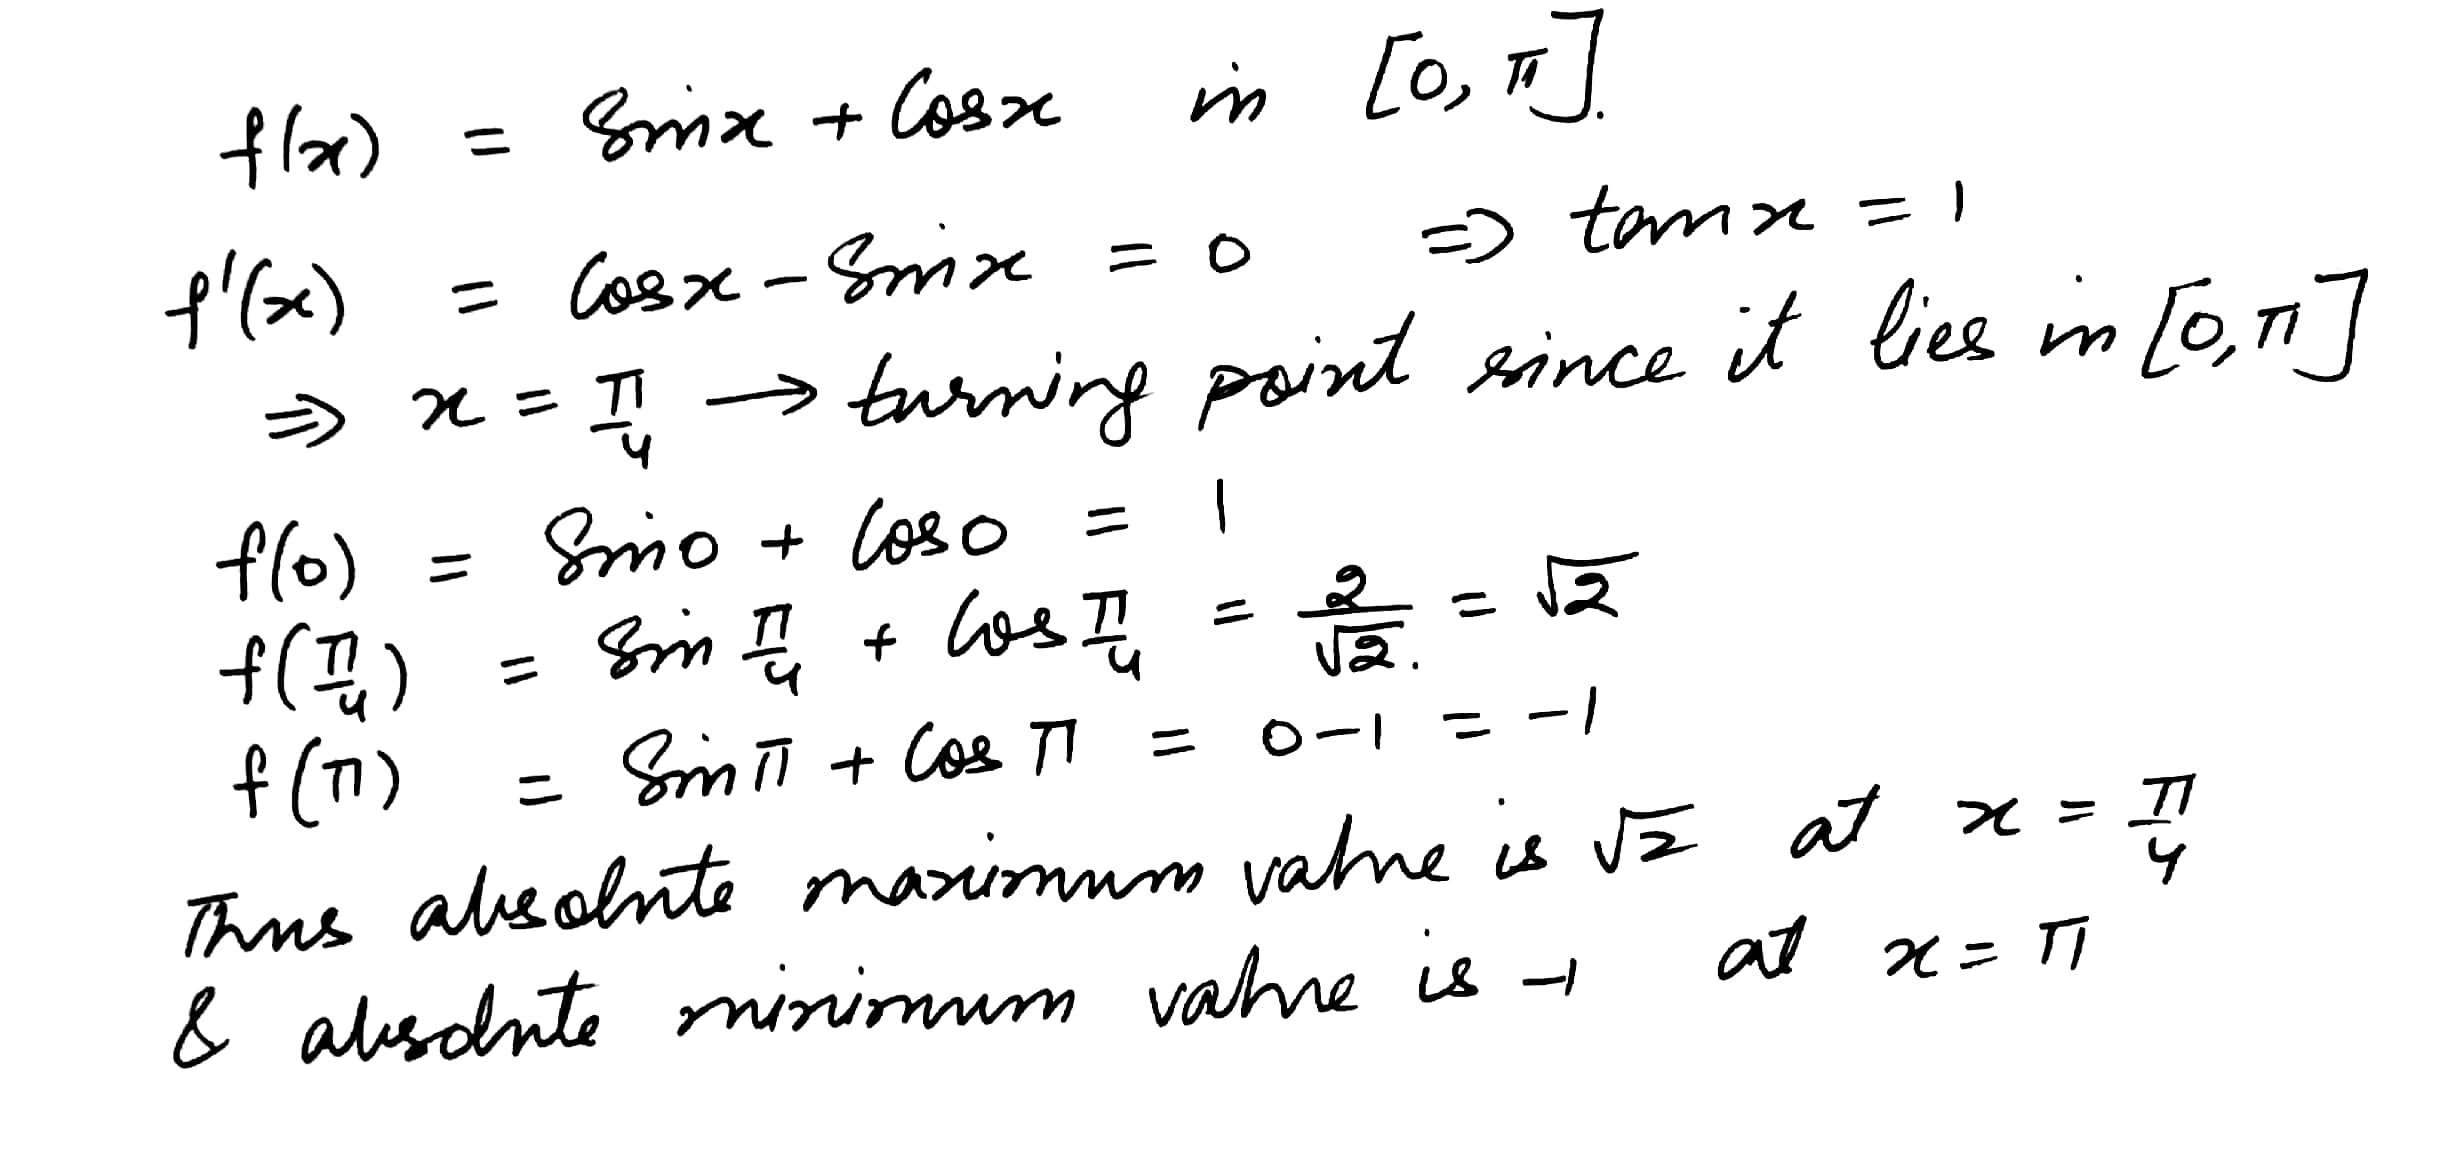 f(x) = Sin x + Cos x in [0, π].
f'(x) = Cos x - Sin x = 0 ⇒ tan x = 1
⇒ x = π/4 → turning point since it lies in [0, π]
f(0) = Sin 0 + Cos 0 = 1
f(π/4) = Sin π/4 + Cos π/4 = 2/√2. = √2
f(π) = Sin π + Cos π = 0-1 = -1
Thus absolute maximum value is √2 at x = π/4
& absolute minimum value is -1 at x = π